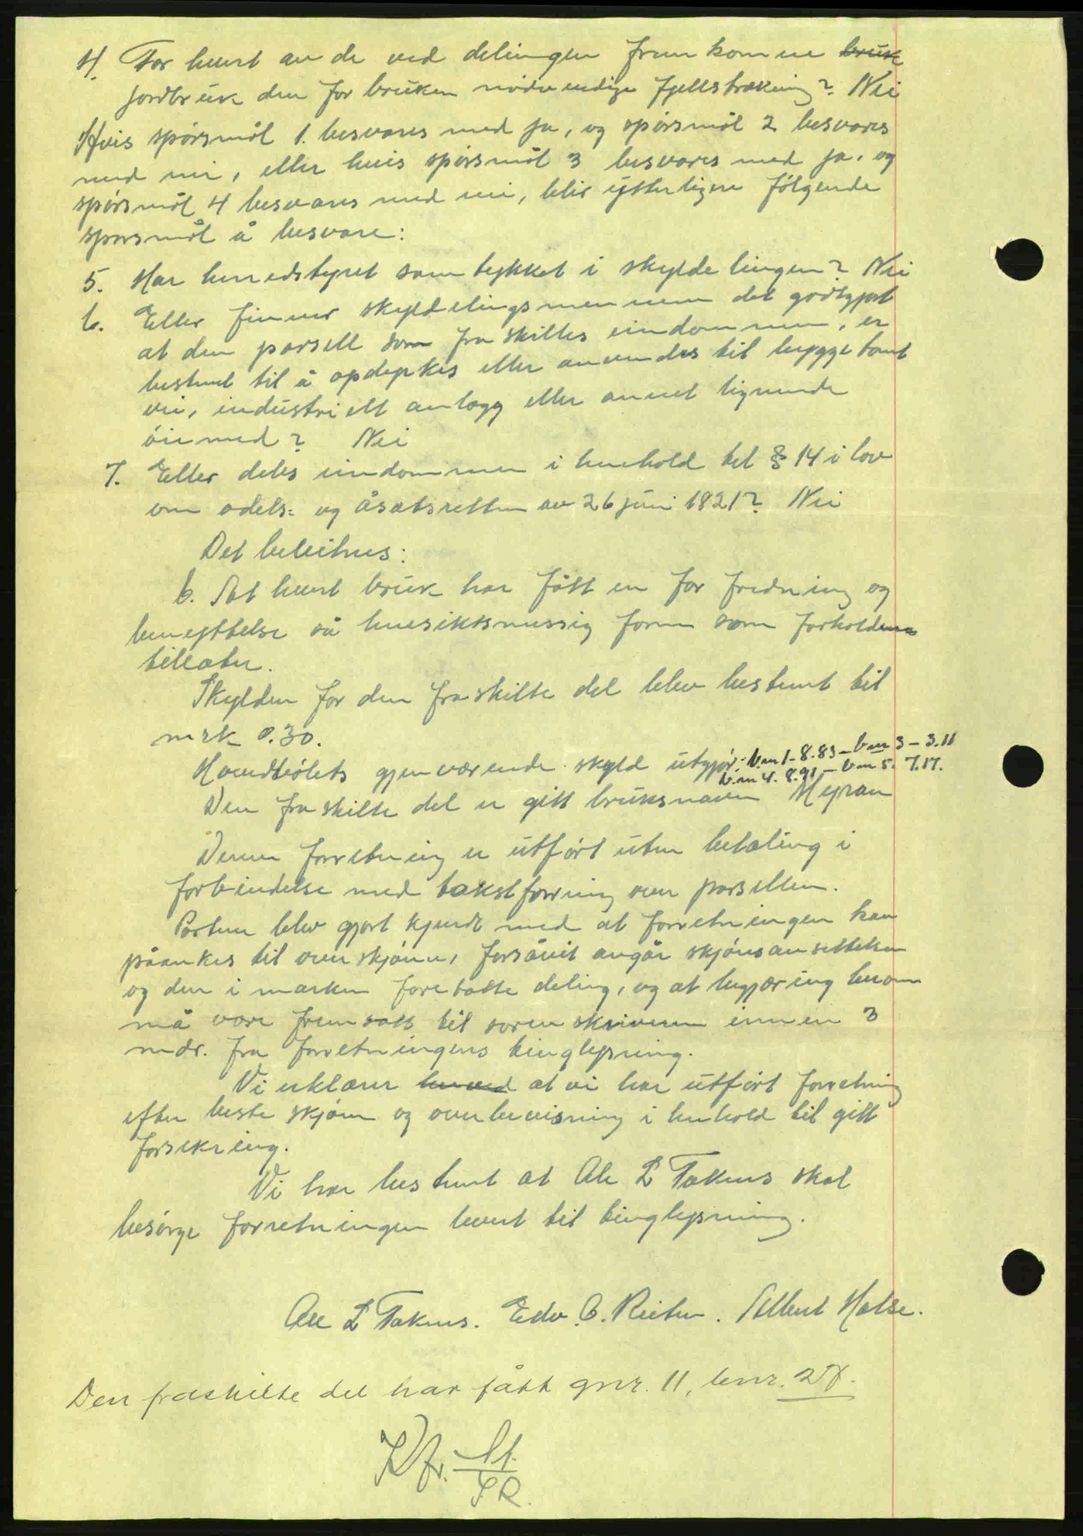 4. Får hvert av de ved delingen fremkomne bruk
jordbruk den for bruken nødvendige fjellstrekning? Nei
Hvis spørsmål 1. besvares med ja, og spørsmål 2 besvares
med nei, eller hvis spørsmål 3 besvares med ja, og
spørsmål 4 besvares med nei, blir ytterligere følgende
spørsmål å besvare:
5. Har herredstyret samtykket i skylddelingen? Nei
6. Eller finner skylddelingsmennene det godtgjort
at den parsell som fraskilles eiendommen, er
bestemt til å opdyrkes eller anvendes til byggetomt
vei, industrielt anlegg eller annet lignende
øiemed? Nei
7. Eller deles eiendommen i henhold til § 14 i lov
om odels- og åsætesretten av 26 juni 1821? Nei
Det bevitnes:
b. At hvert bruk har fått en for fredning og
benyttelse så hensiktsmessig form som forholdene
tillater.
Skylden for den fraskilte del blev bestemt til
mrk 0.30.
Hovedbølets gjenværende skyld utgjør: bnr 1 - 8.83 - bnr 3 - 3.11
bnr 4. 8.91 - bnr 5. 7.17.
Den fraskilte del er gitt bruksnavn Myran
Denne forretning er utført uten betaling i
forbindelse med takstforrning over parsellen.
Partene blev gjort kjendt med at forretningen kan
påankes til overskjønn, forsåvit angår skjønsansettelsen
og den i marken foretatte deling, og at begjæring herom
må være fremsatt til sorenskriveren innen 3
mdr. fra forretningens tinglysning.
Vi erklærer herved at vi har utført forretning
efter beste skjønn og overbevisning i henhold til gitt
forsikring.
Vi har bestemt at Ale L Takens skal
besørge forretningen levert til tinglysning.
Ale L Takens. Edv. C. Reiten. Albert Halse.
Den fraskilte del har fått gnr. 11, bnr. 27.